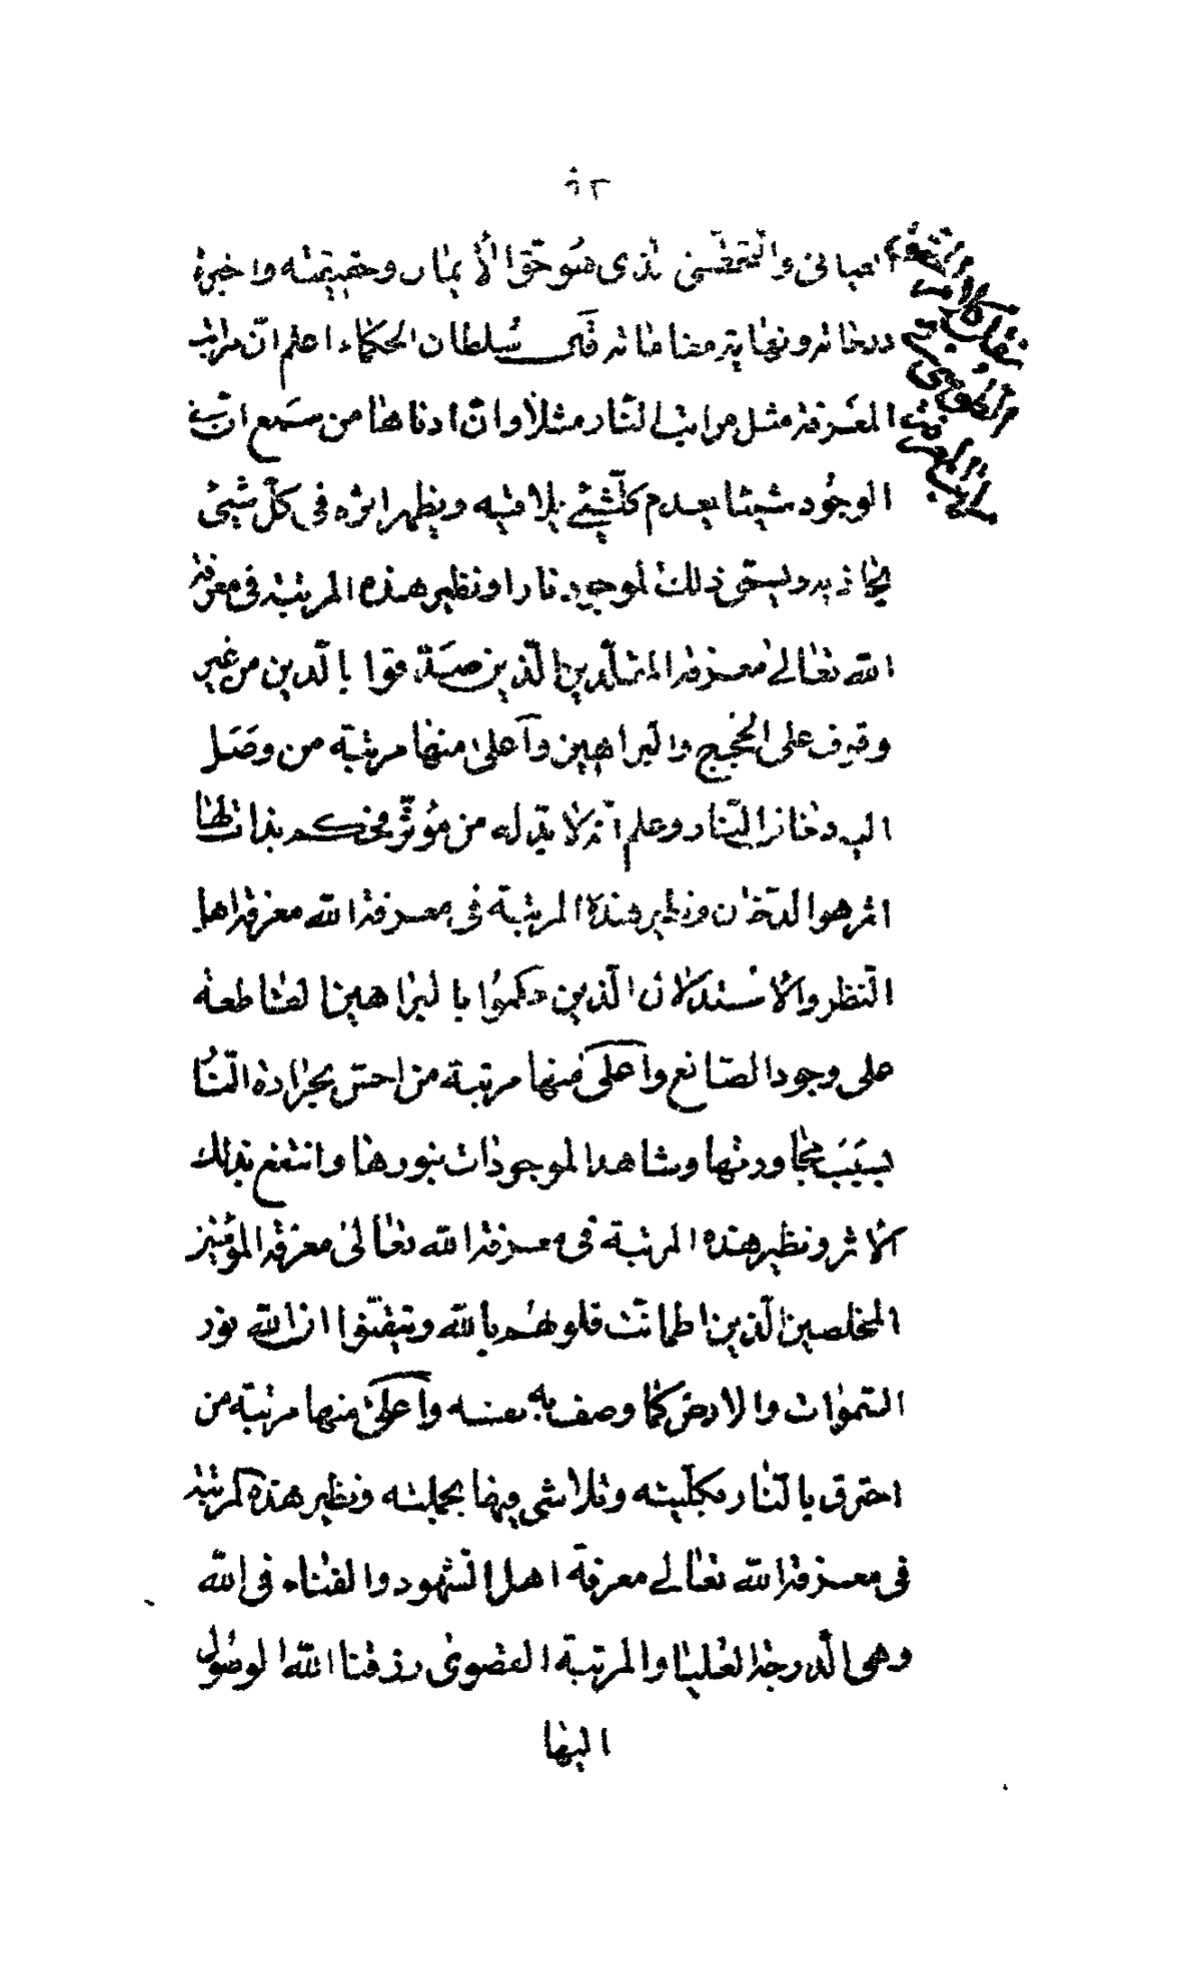 ٥٢
العيانى والتحقيقى الذى هو حق الأيمان وحقيقته واخيرة
درجاته ونهاية مقاماته قال سلطان الحكماء اعلم انّ مراتب
المعرفة مثل مراتب النّار مثلا وانّ ادناها من سمع انّ فى
الوجود شيئا يعدم كلّ شيئ يلاقيه ويظهر اثره فى كلّ شيئ
يحاذيه ويسمى ذلك الموجود نارا ونظير هذه المرتبة فى معرفة
الله تعالى معرفة المقلّدين الّذين صدّقوا بالّدين من غير
وقوف على الحجج والبراهين وآعلى منها مرتبة من وصل
اليه دخان النّار وعلم انّه لا بدّ له من مؤثّر فحكم بذات لها
اثر هو الدّخان ونظير هذه المرتبة فى معرفة الله معرفة اهل
النّظر والأستدلال الّذين حكموا بالبراهين القاطعة
على وجود الصّانع وآعلى منها مرتبة من احسّ بحرارة النّار
بسبب مجاورتها وشاهد الموجودات بنورها وانتفع بذلك
الأثر ونظير هذه المرتبة فى معرفة الله تعالى معرفة المؤمنين
المخلصين الّذين اطمأنّت قلوبهم بالله وتيقّنوا انّ الله نور
السّموات والارض كما وصف به نفسه وآعلى منها مرتبة من
احترق بالنّار بكلّيته وتلاشى فيها بجملته ونظير هذه المرتبة
فى معرفة الله تعالى معرفة اهل الشّهود والفناء فى الله
وهى الّدرجة العليا والمرتبة القصوى رزقنا الله الوصول
اليها